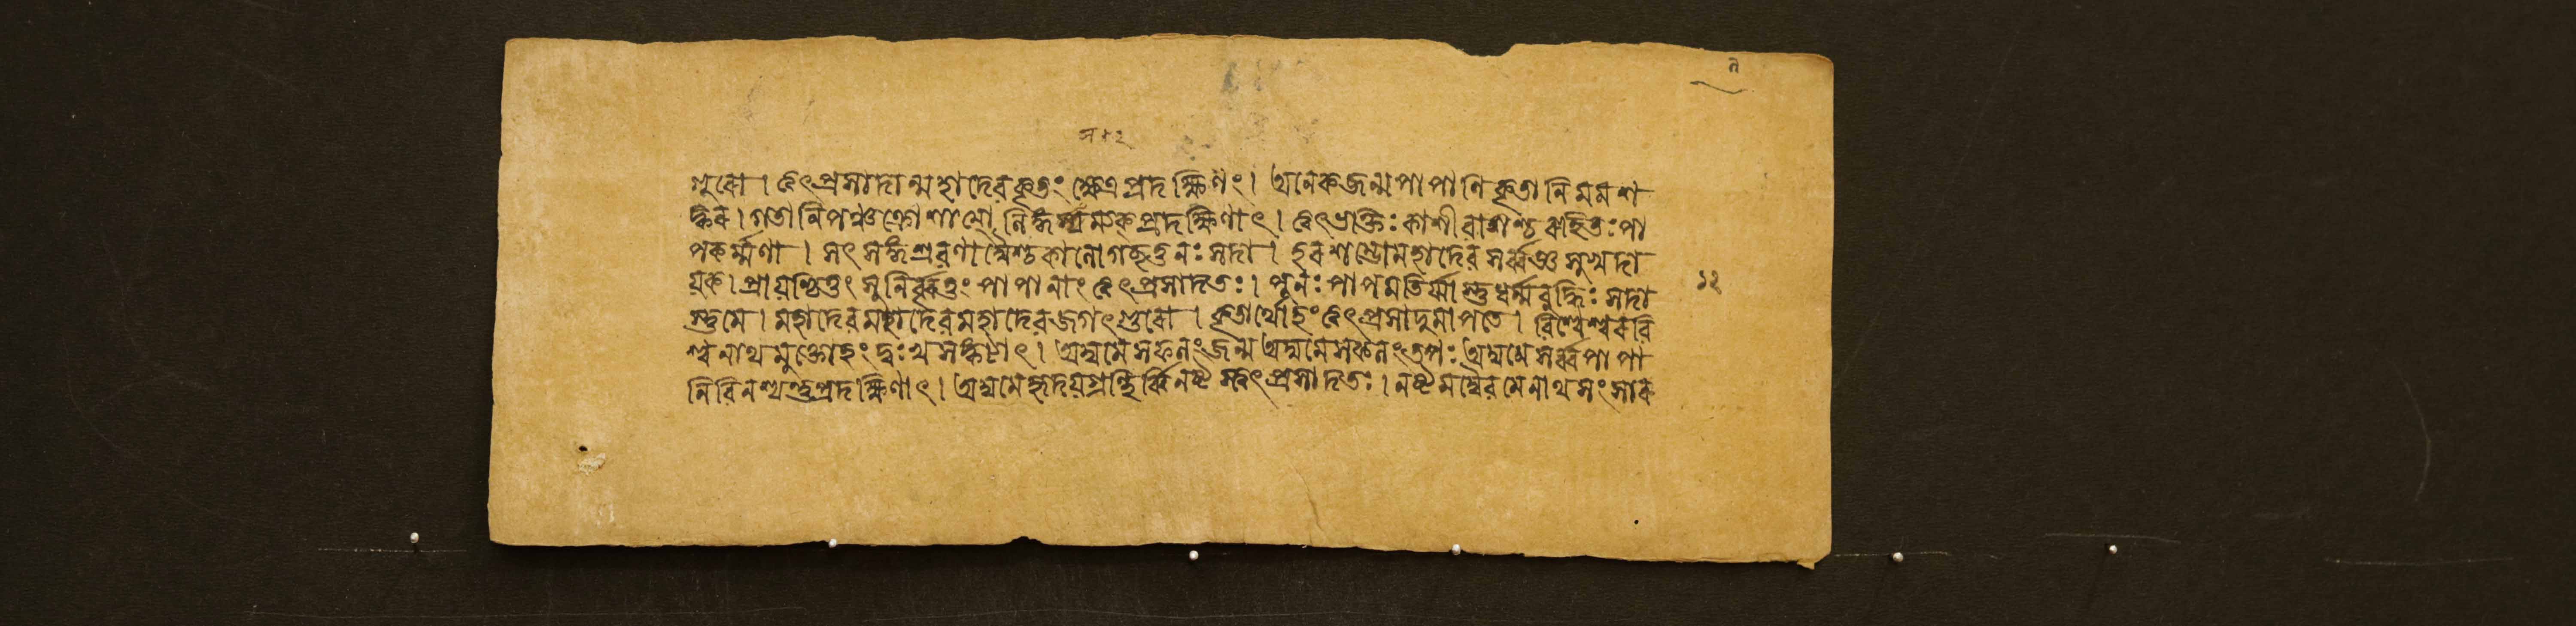 গুরো। ত্বৎপ্রসাদান্মহাদেবকৃতং ক্ষেত্রপ্রদক্ষিণং। অনেকজন্মপাপানিকৃতানিমমশ
ঙ্কর। গতানিপঞ্চক্রোশাত্মো প্রদক্ষিণাৎ। ত্বৎভক্তিঃ কাশীবাশশ্চরহিতঃপা
পকর্ম্মণা। সৎসঙ্গশ্রবণাদ্যৈশ্চকালোগচ্ছতুনঃসদা। হরশম্ভোমহাদেবসর্ব্বজ্ঞসুখদা
য়ক। প্রায়শ্চিত্তং সুনির্ব্বৃত্তং পাপানাং ত্বৎপ্রসাদতঃ। পুনঃ পাপমতির্ম্মাস্তুধর্ম্মবুদ্ধিঃ সদা
১২
স্তুমে। মহাদেবমহাদেবমহাদেবজগৎগুরো। কৃতার্থোহং ত্বৎপ্রসাদুমাপতে। বিশ্বেশ্বরবি
শ্বনাথমুক্তোহং দুঃখসঙ্কটাৎ। অদ্যমেসফলংজন্ম অদ্যমেসফলংতপঃ অদ্যমেসর্ব্বপাপা
নিবিনশ্যন্তুপ্রদক্ষিণাৎ। অদ্যমেহৃদয়গ্রন্থির্ব্বিনষ্টস্ত্বৎপ্রসাদতঃ। নষ্টমদ্যৈবমেনাথসংসার